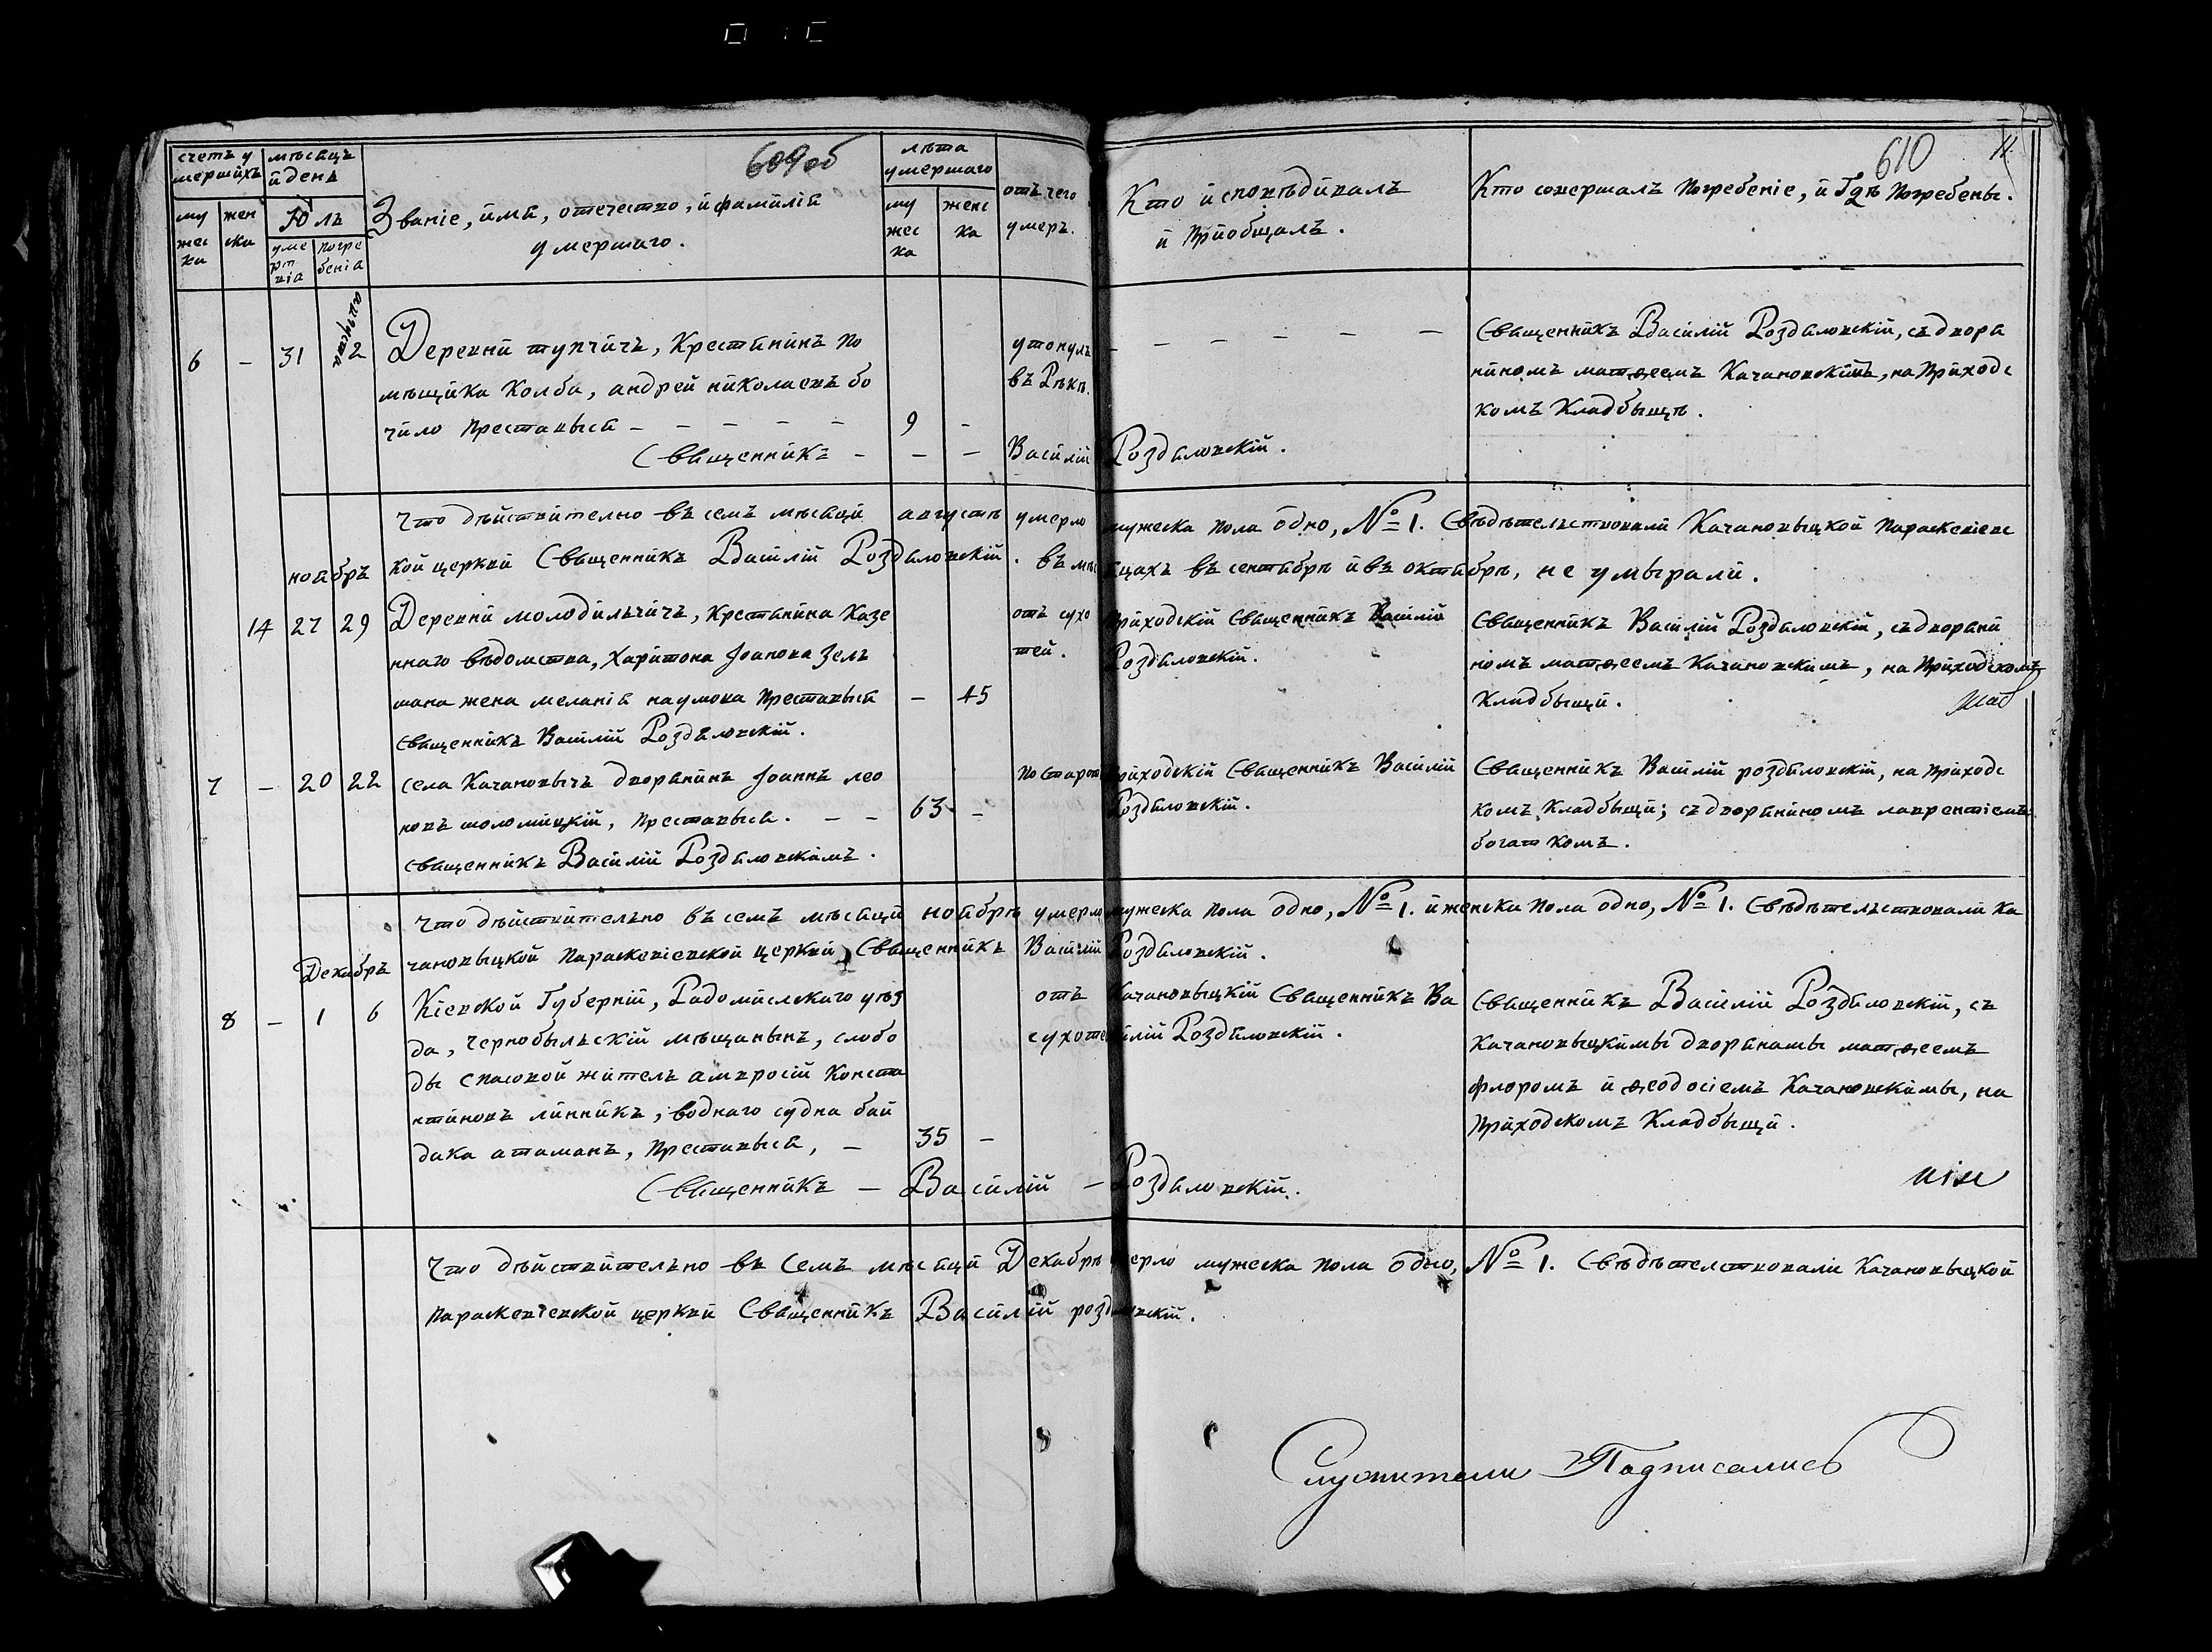 609 об
610
счетъ у
мершихъ
мѣсяцъ
и день
Званіе, имя, отечество, и фамилія
умершаго.
лѣта
умершаго
отъ чего
умеръ.
Кто исповѣдивалъ
и приобщалъ.
Кто совершалъ погребеніе, и Гдѣ погребены.
му
жес
ка
жен
ска
Юль
уме
рт
вія
погре
бенія
му
жес
ка
женс
ка
6 - 31 августа 2
Деревни тупчичъ, Крестянинъ по
мѣщика Колба, андрей николаевъ бо
чило преставися - - - - - 9 -
утонулъ
въ Рѣкѣ.
- - - - - -
Священникъ Василій Роздяловскій, съ дворя
ниномъ матѳеемъ Качановскимъ, на приходс
комъ Кладбыщѣ.
Священникъ - - - Василій Роздяловскій.
Что дѣйствително въ семъ мѣсяцѣ августѣ умерло мужеска пола одно, № 1. Свѣдѣтелствовали Качановыцкой параскевіевс
кой церкви Священникъ Василій Роздяловскій. въ мѣсяцахъ въ сентябрѣ и въ октябрѣ, не умырали.
ноябръ
14 27 29
Деревни молодильчичъ, крестянина казе
ннаго вѣдомства, харитона Іоанова зель
мана жена меланія наумова преставися - 45
священникъ Василій Роздяловскій.
отъ сухо
тей.
приходскій священникъ Василій
Роздяловскій.
Священникъ Василій Роздяловскій, съ дворяни
номъ матѳеемъ Качановскимъ, на приходскомъ
Кладбыщи.
7 - 20 22
села Качановычъ дворянинъ Іоаннъ лео
новъ шоломицкій, преставися. - - 63 -
священникъ Василій Роздяловскимъ.
по старости
приходскій Священникъ Василій
Роздяловскій.
Священникъ Василій роздяловскій, на приходс
комъ Кладбыщи; съ дворяниномъ лаврентіемъ
богаткомъ.
Что дѣйствително въ семъ мѣсяцѣ ноябрѣ умерло мужеска пола одно, № 1. и женска пола одно, № 1. Свѣдѣтелствовали Ка
чановыцкой параскевіевской церкви Священникъ Василій Роздяловскій.
Декабръ
8 - 1 6
Кіевской Губерніи, Радомислскаго уѣз
да, чернобылъскій мѣщанынъ, слобо
ды спасовой жителъ амвросій конста
нтиновъ линникъ, водного судна бай
дака атаманъ, преставися, - 35 -
отъ
сухотей
Качановыцкій Священникъ Ва
силій Роздяловскій.
Священникъ Василій Роздяловскій, съ
Качановыцкимы дворянамы матѳеемъ
флоромъ и ѳеодосіемъ Качановскимы, на
приходскомъ Кладбыщи.
Священникъ - Василій - Роздяловскій.
Что дѣйствително въ семъ мѣсяцѣ Декабрѣ умерло мужеска пола одно, № 1. Свѣдѣтелствовали Качановыцкой
параскевіевской церкви Священникъ Василій роздяловскій.
Служители Подписались